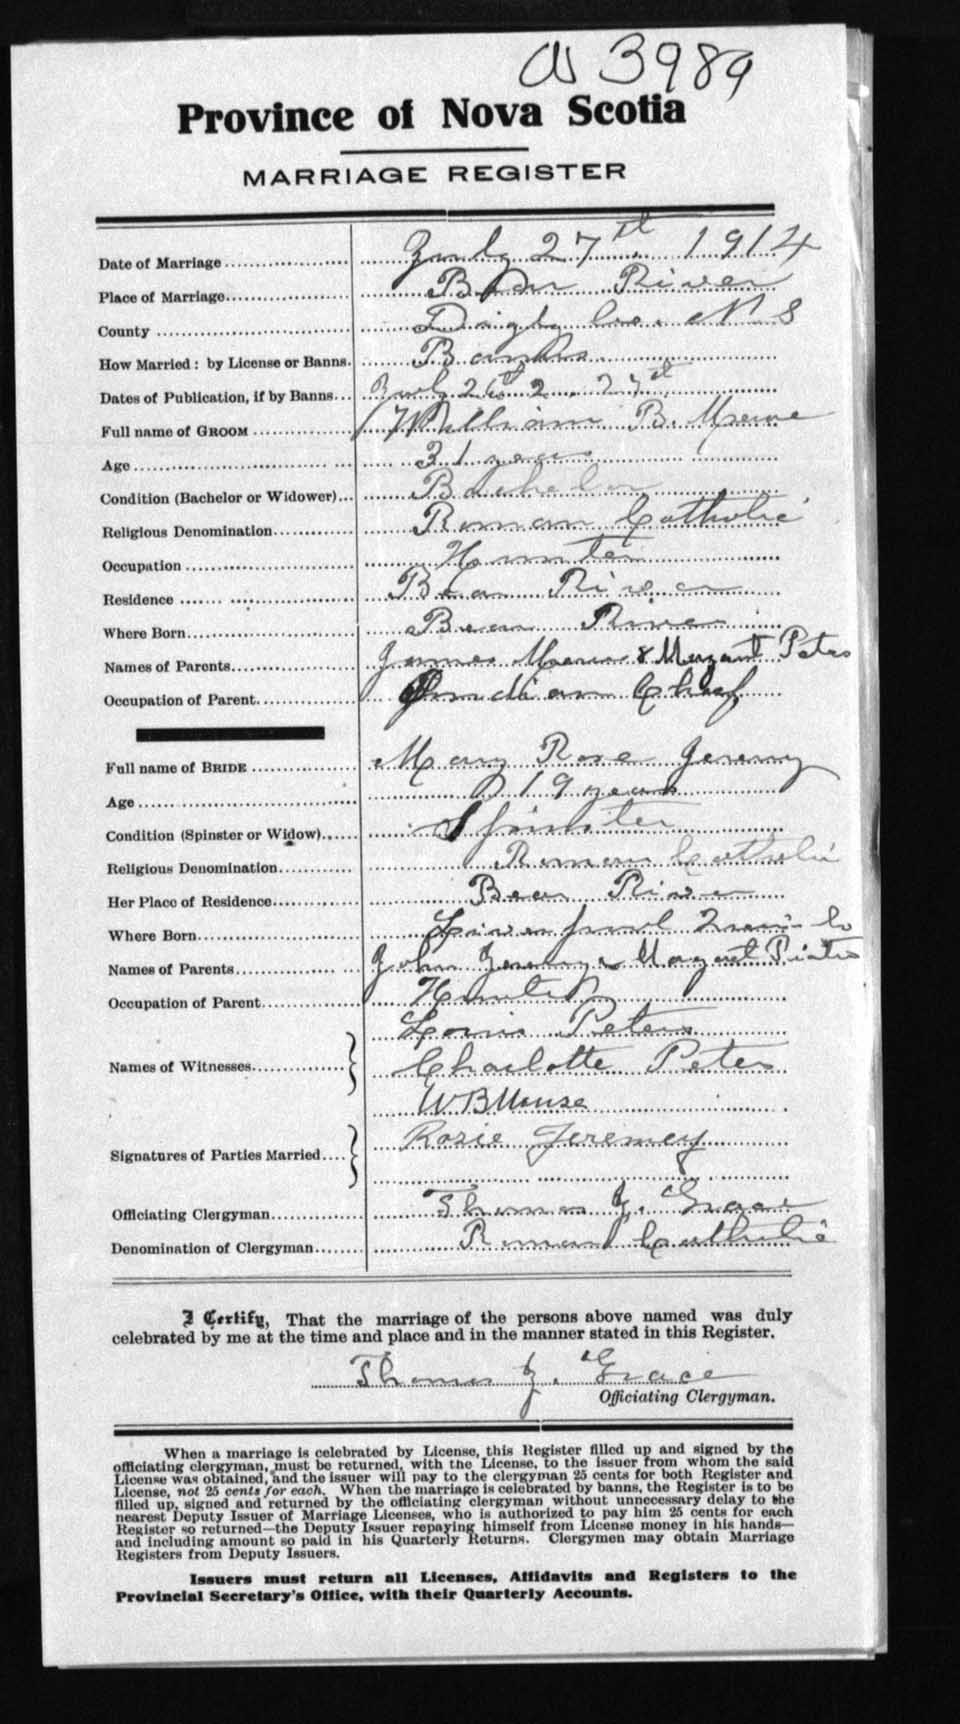 3989
Province of Nova Scotia
MARRIAGE REGISTER
Date of Marriage July 27th 1914
Place of Marriage Bear River
County Digby Co. N S
How Married: by License or Banns. Banns
Dates of Publication, if by Banns July 26th 27th
Full name of GROOM William B. Meuse
Age 31 years
Condition (Bachelor or Widower) Bachelor
Religious Denomination Roman Catholic
Occupation Hunter
Residence Bear River
Where Born Bear River
Names of Parents James Meuse & Margaret Peters
Occupation of Parent Indian Chief
Full name of BRIDE Mary Rose Jeremy
Age 19 years
Condition (Spinster or Widow) Spinster
Religious Denomination Roman Catholic
Her Place of Residence Bear River
Where Born Liverpool Co
Names of Parents John Jeremy & Margaret Peters
Occupation of Parent Hunter
Louis Peters
Names of Witnesses Charlotte Peters
W B Meuse
Signatures of Parties Married Rosie Jeremey
Officiating Clergyman Thomas J. Grace
Denomination of Clergyman Roman Catholic
I Certify, That the marriage of the persons above named was duly
celebrated by me at the time and place and in the manner stated in this Register.
Thomas J. Grace
Officiating Clergyman.
When a marriage is celebrated by License, this Register filled up and signed by the
officiating clergyman, must be returned, with the License, to the issuer from whom the said
License was obtained, and the issuer will pay to the clergyman 25 cents for both Register and
License, not 25 cents for each. When the marriage is celebrated by banns, the Register is to be
filled up, signed and returned by the officiating clergyman without unnecessary delay to the
nearest Deputy Issuer of Marriage Licenses, who is authorized to pay him 25 cents for each
Register so returned—the Deputy Issuer repaying himself from License money in his hands—
and including amount so paid in his Quarterly Returns. Clergymen may obtain Marriage
Registers from Deputy Issuers.
Issuers must return all Licenses, Affidavits and Registers to the
Provincial Secretary's Office, with their Quarterly Accounts.